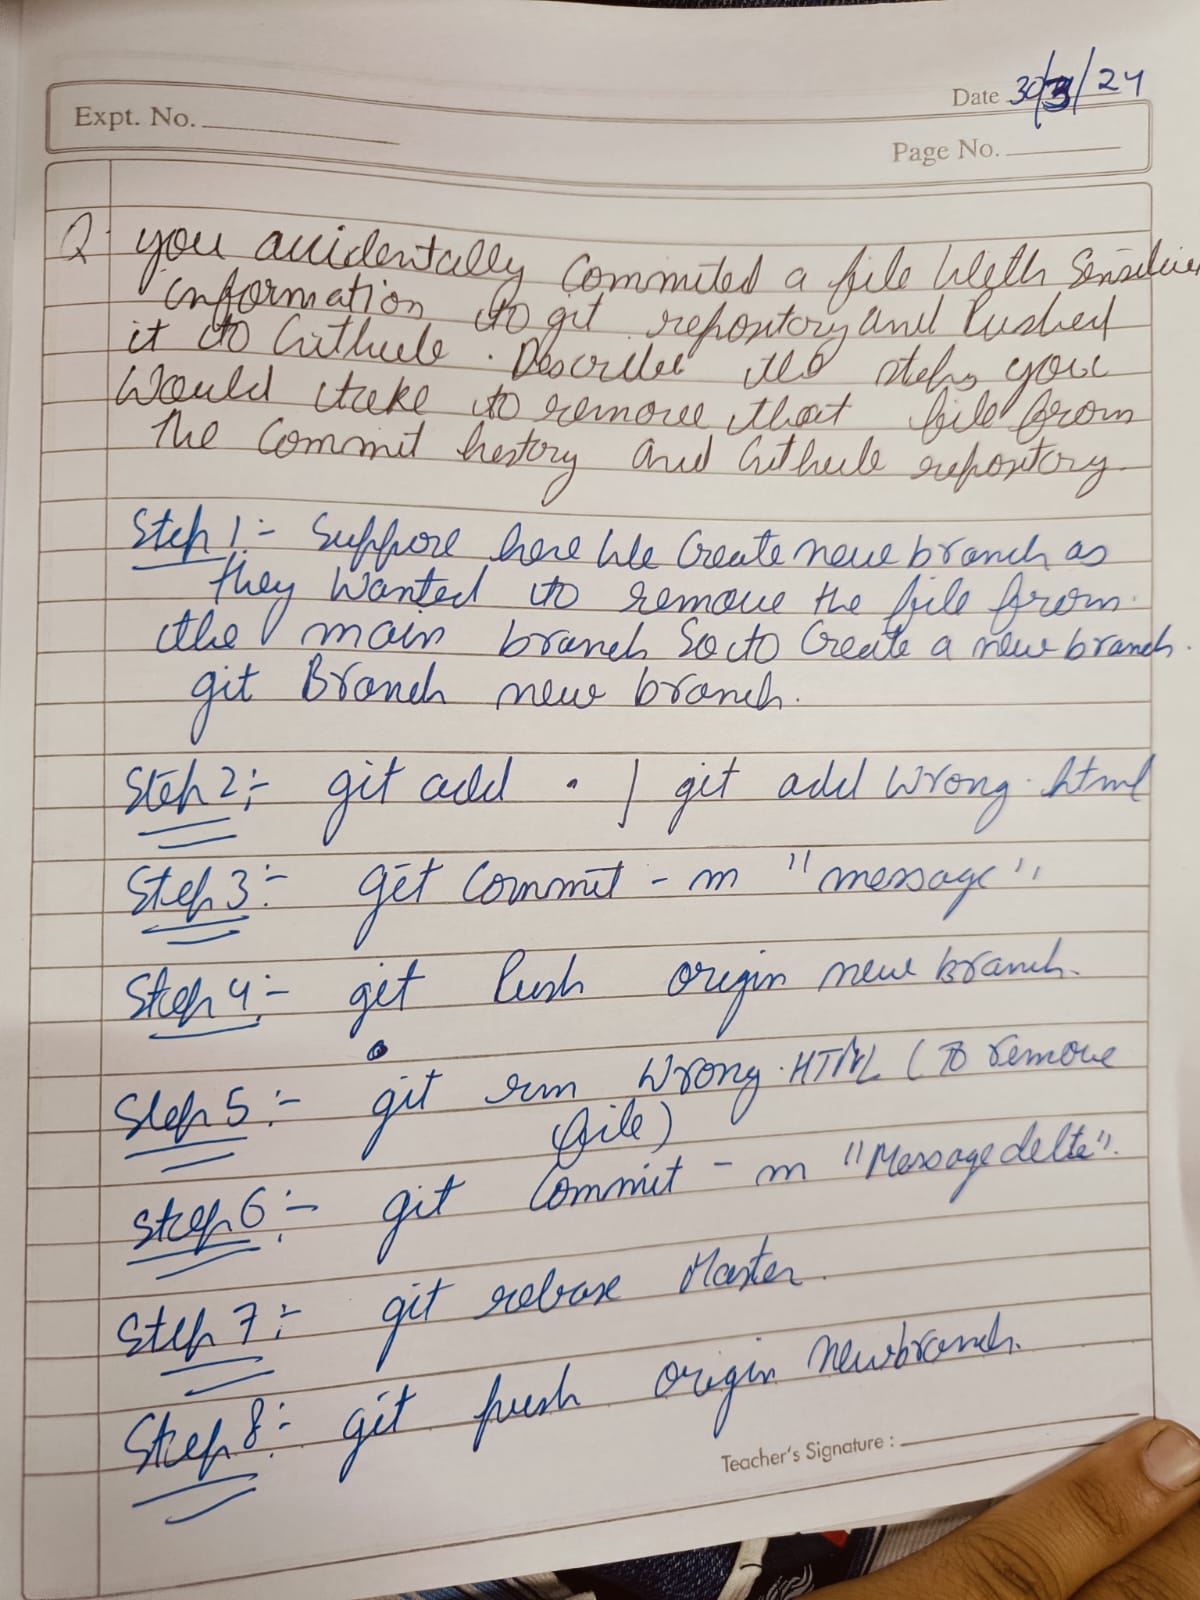 Date 30/3/24
Expt. No.
Page No.
Q. you accidentally Commited a file With Sensitive
information to git repository and Pushed
it to Github. Describe the steps you
Would take to remove that file from
The Commit history and Github repository.
Step 1:- Suppose here We Create new branch as
they Wanted to remove the file from
the main branch So to Create a new branch.
git Branch new branch.
Step 2:- git add . | git add Wrong.html
Step 3:- git Commit - m "message".
Step 4:- git Push origin new branch.
Step 5:- git rm Wrong.HTML (To remove
file)
Step 6:- git Commit - m "Message delte".
Step 7:- git rebase Master.
Step 8:- git push origin Newbranch.
Teacher's Signature :